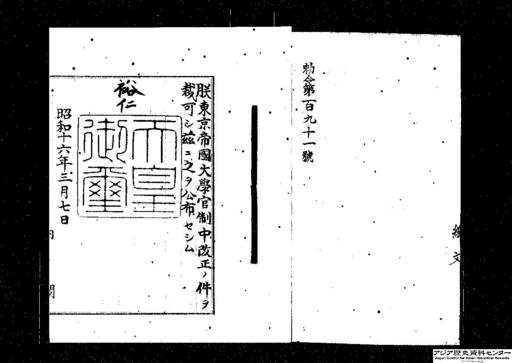 勅令第百九十一號
朕東京帝國大學官制中改正ノ件ヲ
裁可シ茲ニ之ヲ公布セシム
裕仁
天皇
御璽
昭和十六年三月七日
内
閣
アジア歴史資料センター
Japan Center for Asian Historical Records